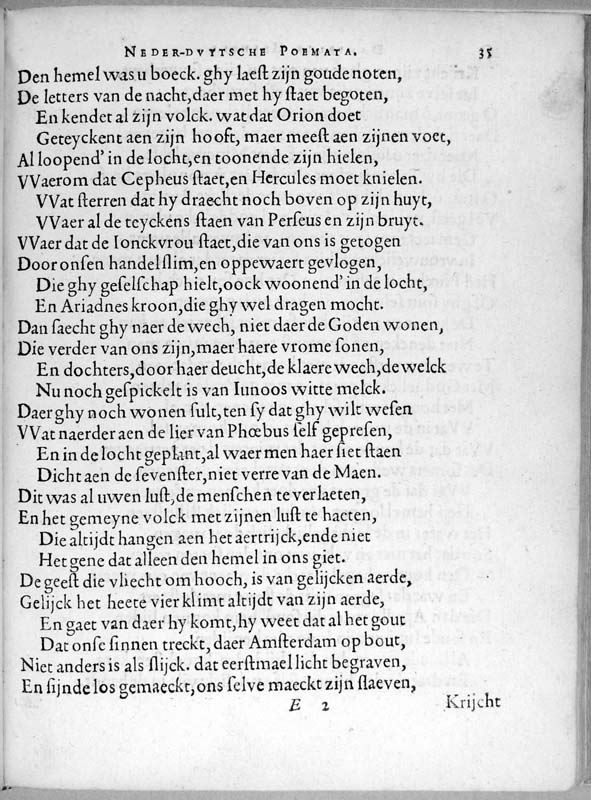 NEDER-DVYTSCHE POEMATA. 35
Den hemel was u boeck. ghy laeſt zijn goude noten,
De letters van de nacht, daer met hy ſtaet begoten,
En kendet al zijn volck. wat dat Orion doet
Geteyckent aen zijn hooft, maer meeſt aen zijnen voet,
Al loopend' in de locht, en toonende zijn hielen,
VVaerom dat Cepheus ſtaet, en Hercules moet knielen.
VVat ſterren dat hy draecht noch boven op zijn huyt,
VVaer al de teyckens ſtaen van Perſeus en zijn bruyt.
VVaer dat de Ionckvrou ſtaet, die van ons is getogen
Door onſen handel ſlim, en oppewaert gevlogen,
Die ghy geſelſchap hielt, oock woonend' in de locht,
En Ariadnes kroon, die ghy wel dragen mocht.
Dan ſaecht ghy naer de wech, niet daer de Goden wonen,
Die verder van ons zijn, maer haere vrome ſonen,
En dochters, door haer deucht, de klaere wech, de welck
Nu noch geſpickelt is van Iunoos witte melck.
Daer ghy noch wonen ſult, ten ſy dat ghy wilt weſen
VVat naerder aen de lier van Phœbus ſelf gepreſen,
En in de locht geplant, al waer men haer ſiet ſtaen
Dicht aen de ſevenſter, niet verre van de Maen.
Dit was al uwen luſt, de menſchen te verlaeten,
En het gemeyne volck met zijnen luſt te haeten,
Die altijdt hangen aen het aertrijck, ende niet
Het gene dat alleen den hemel in ons giet.
De geeſt die vliecht om hooch, is van gelijcken aerde,
Gelijck het heete vier klimt altijdt van zijn aerde,
En gaet van daer hy komt, hy weet dat al het gout
Dat onſe ſinnen treckt, daer Amſterdam op bout,
Niet anders is als ſlijck. dat eerſtmael licht begraven,
En ſijnde los gemaeckt, ons ſelve maeckt zijn ſlaeven,
E 2 Krijcht